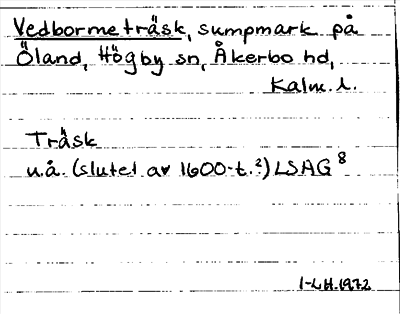 Vedborme träsk, sumpmark på
Öland, Högby sn, Åkerbo hd,
Kalm. l.
Träsk
u.å. (slutet av 1600-t.?) LSAG 8
I-LH.1972